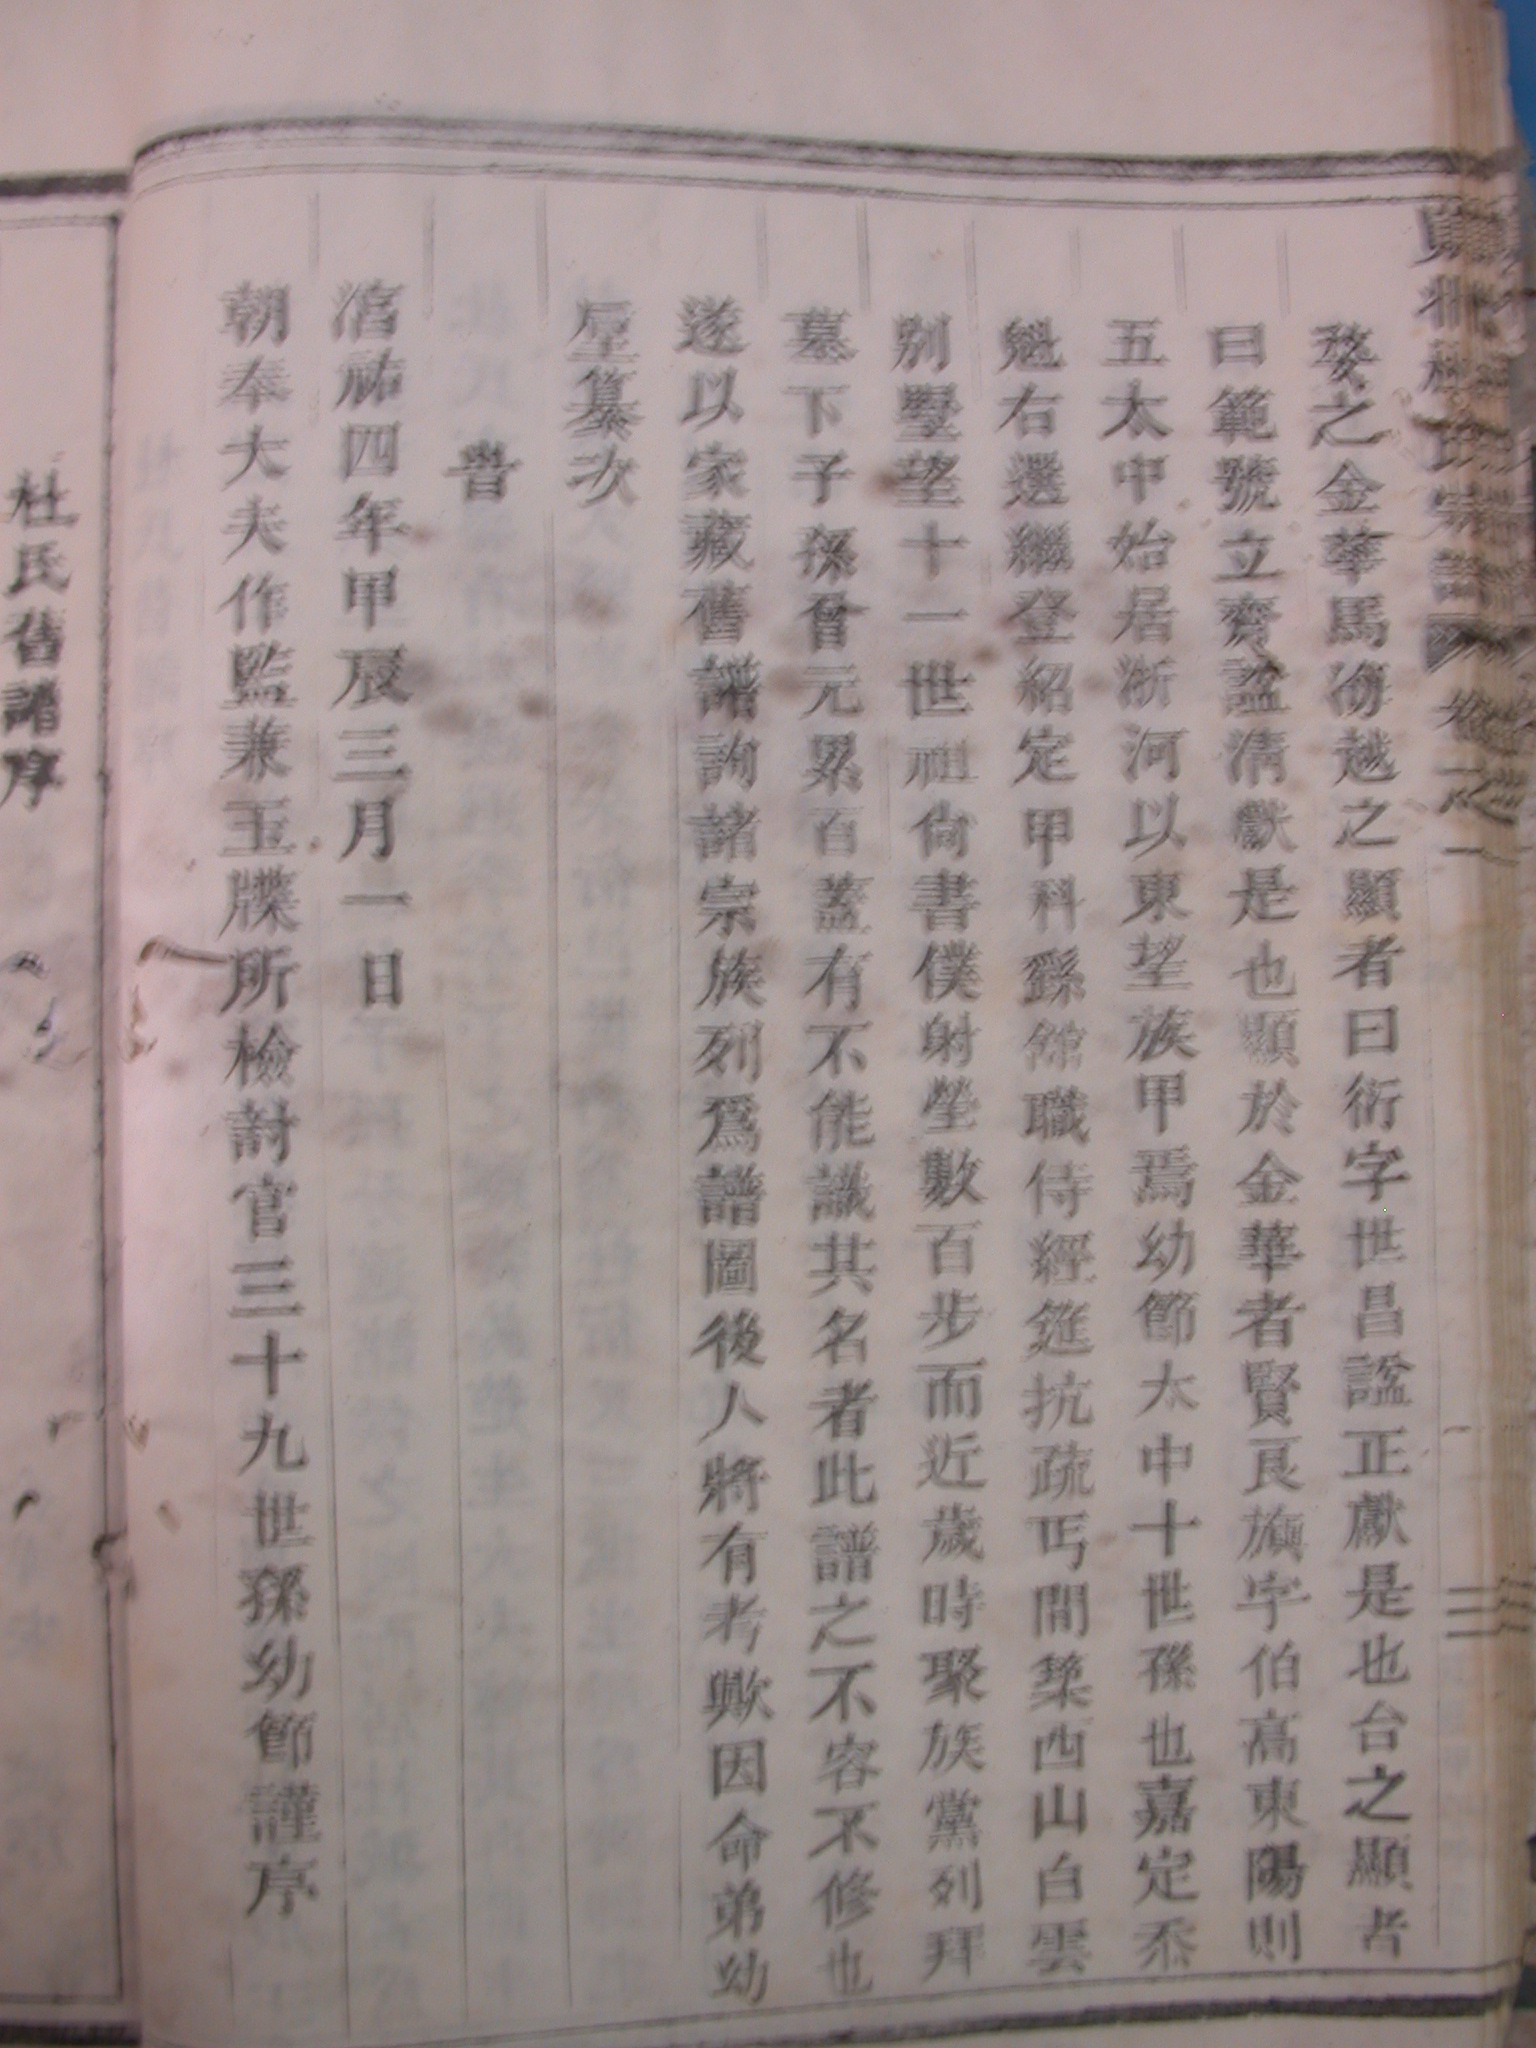 婺之金華馬海越之顯者曰衍字世昌諡正獻是也台之顯者
曰範號立齋諡清獻是也顯於金華者賢良旟字伯高東陽則
五太中始居浙河以東望族甲焉幼節太中十世孫也嘉定忝
魁右選繼登紹定甲科繇館職侍經筵抗疏丐間築西山白雲
別墅望十一世祖尚書僕射塋數百步而近歲時聚族黨列拜
墓下子孫曾元累百蓋有不能識其名者此譜之不容不修也
遂以家藏舊譜詢諸宗族列爲譜圖後人將有考歟因命弟幼
垕纂次
昔
淳祐四年甲辰三月一日
朝奉大夫作監兼玉牒所檢討官三十九世孫幼節謹序
杜氏舊譜序